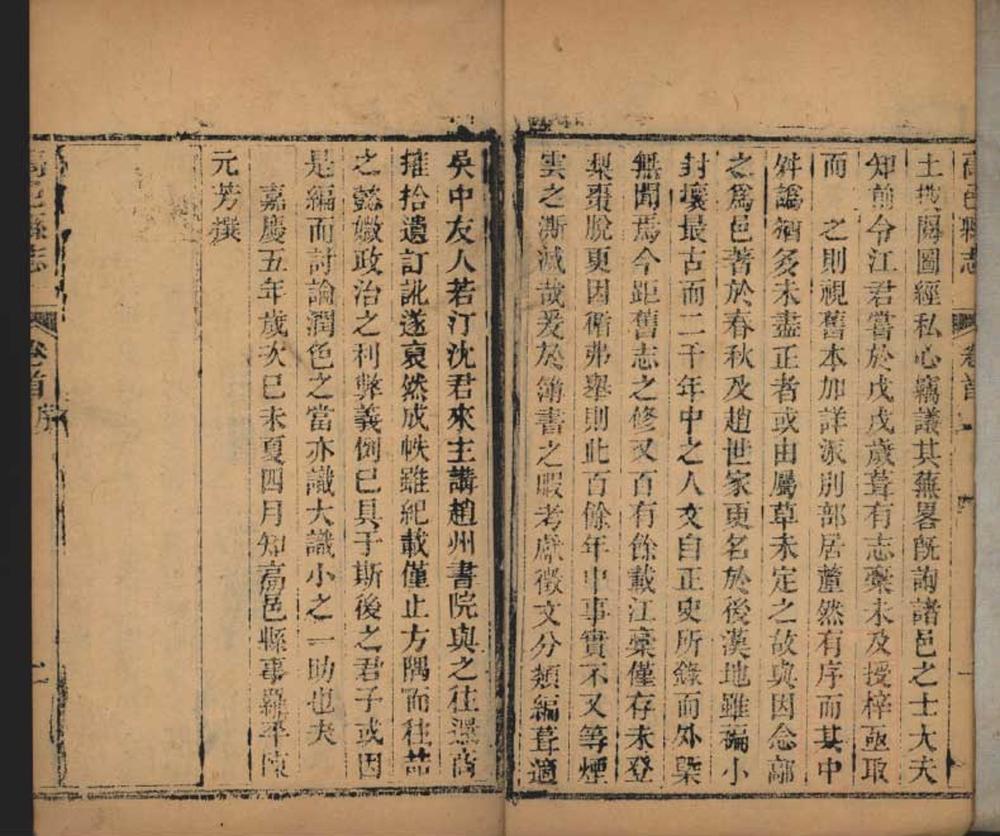 高邑縣志 卷首
土披閱圖經私心竊議其蕪畧旣詢諸邑之士大夫
知前令江君嘗於戊戌歲葺有志藁未及授梓亟取
而 之則視舊本加詳派別部居釐然有序而其中
舛譌猶多未盡正者或由屬草未定之故與因念鄗
之爲邑著於春秋及趙世家更名於後漢地雖褊小
封壤最古而二千年中之人文自正史所錄而外槩
無聞焉今距舊志之修又百有餘載江藁僅存未登
梨棗脫更因循弗舉則此百餘年中事實不又等煙
雲之澌滅哉爰於簿書之暇考獻徵文分類編葺適
吳中友人若汀沈君來主講趙州書院與之往還商
搉拾遺訂訛遂裒然成帙雖紀載僅止方隅而往喆
之懿媺政治之利弊義例已具于斯後之君子或因
是編而討論潤色之當亦識大識小之一助也夫
嘉慶五年歲次己未夏四月知高邑縣事羅平陳
元芳撰
高邑縣志 卷首 序 一